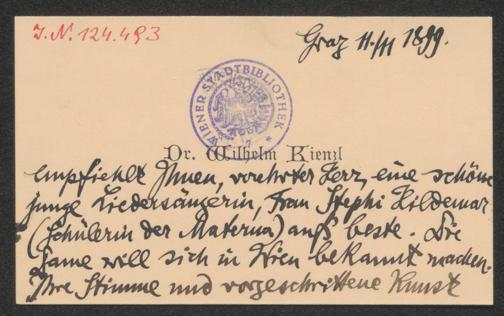 J.N. 124.493
Graz 11./11 1899.
WIENER STADTBIBLIOTHEK
Dr. Wilhelm Kienzl
empfiehlt Ihnen, verehrter Herr, eine schöne
junge Liedersängerin, Frau Stephi Hildemar
(Schülerin der Materna) aufs beste. Die
Dame will sich in Wien bekannt machen.
Ihre Stimme und vorgeschrittene Kunst